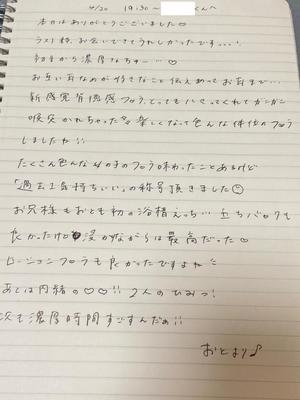 4/20 19:30〜 くんへ
本日はありがとうございました♡
ラスト枠、お会いできてうれしかったです...!
初手から濃厚なちゅー...♡
お互い耳なのが好きなこと伝えあってお耳まで...
新感覚背徳感フロウ、とっても してくれてガンガン
喉突かれちゃった 楽しくなって色んな体位のフロウ
しましたね!!
たくさん色んな女の子のフロウ味わったことあるけど
「過去1気持ちいい」の称号頂きました☺
お兄様もおとも初の浴槽えっち... 立ちバックも
良かったけど浸かながらは最高だった♡
ローションフロウも良かったですよね
あとは内緒の♡♡!! 2人のひみつっ!
次も濃厚時間すごすんだぁ!!
おとより♪